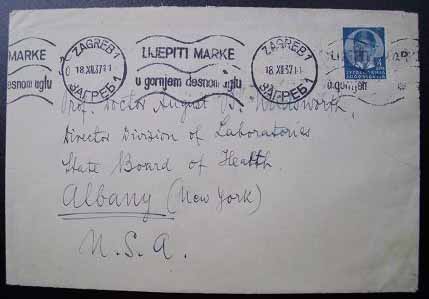 MARKE
desnom uglu
ZAGREB 1
18.XII.37
ЗАГРЕБ 1
LIJEPITI MARKE
u gornjem desnom uglu
ZAGREB 1
18.XII.37
ЗАГРЕБ 1
LIJEPITI MAR
u gornjem
Prof. Doctor August B. Wadsworth
Director Division of Laboratories
State Board of Health
Albany (New York)
U.S.A.